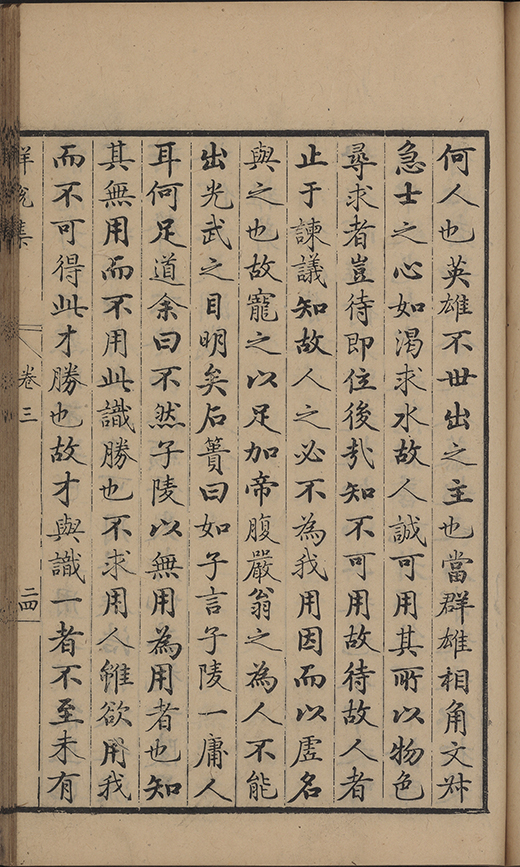 何人也英雄不世出之主也當群雄相角文叔
急士之心如渴求水故人誠可用其所以物色
尋求者豈待即位後㢤知不可用故待故人者
止于諫議知故人之必不為我用因而以虛名
與之也故寵之以足加帝腹嚴翁之為人不能
出光武之目明矣石簣曰如子言子陵一庸人
耳何足道余曰不然子陵以無用為用者也知
其無用而不用此識勝也不求用人雖欲用我
而不可得此才勝也故才與識一者不至未有
集 卷三 二四